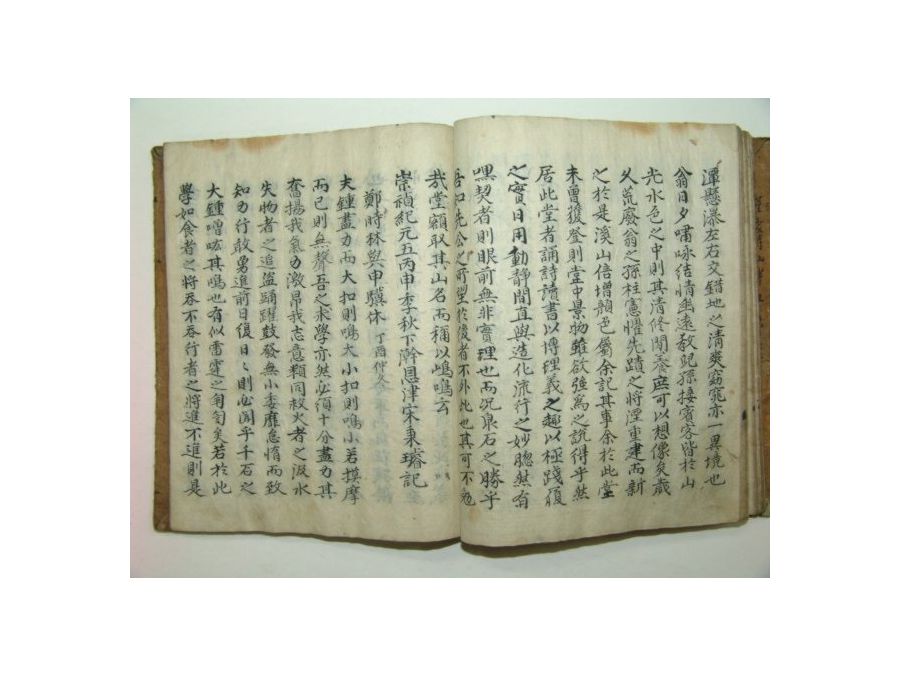 潭懸瀑左右交錯地之清爽窈窕亦一異境也
翁日夕嘯咏結情幽遠教兒孫接賓客皆於山
光水色之中則其清修閒養庶可以想像矣歲
久荒廢翁之孫柱憲懼先蹟之將湮重建而新
之於是溪山倍增顏色屬余記其事余於此堂
未曾獲登則堂中景物雖欲強爲之說得乎然
居此堂者誦詩讀書以博理義之趣以極踐履
之實日用動靜間直與造化流行之妙腮然有
嘿契者則眼前無非實理也而況泉石之勝乎
吾知先公之所望於後者不外此也其可不勉
哉堂顧取其山名而稱以嵨鳴云
崇禎紀元五丙申季秋下澣恩津宋秉璿記
鄭時林與申驥休 丁酉仲冬
夫鍾盡力而大扣則鳴大小扣則鳴小若摸摩
而已則無聲吾之求學亦然必須十分盡力其
奮揚我氣力激昂我志意類同救火者之汲水
失物者之追盜踊躍鼓發無小委靡怠惰而致
知力行敢勇進前日復日〻則必聞乎千石之
大鍾噌吰其鳴也有似雷霆之訇訇矣若於此
學如食者之將吞不吞行者之將進不進則是